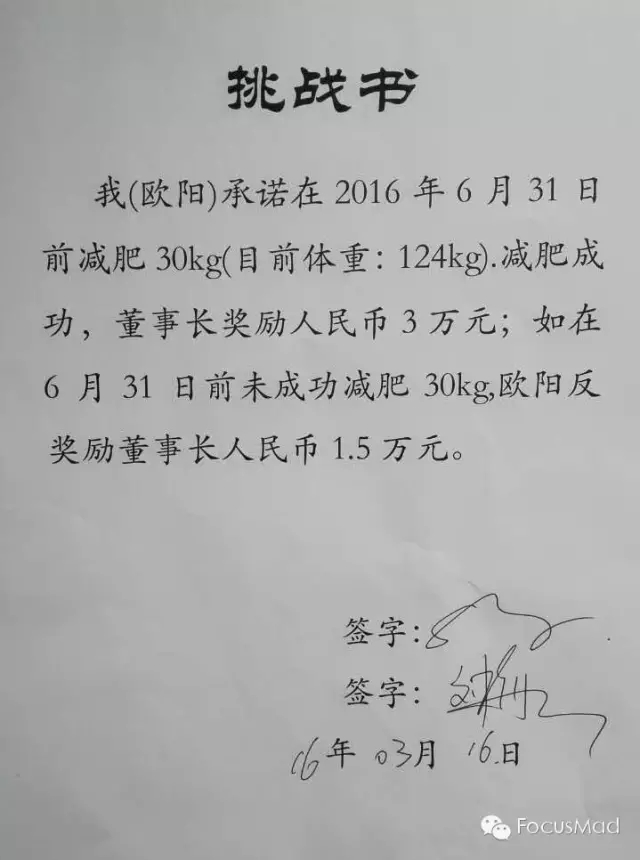 挑战书
我(欧阳)承诺在 2016 年 6 月 31 日
前减肥 30kg(目前体重：124kg).减肥成
功，董事长奖励人民币 3 万元；如在
6 月 31 日前未成功减肥 30kg,欧阳反
奖励董事长人民币 1.5 万元。
签字：
签字：
16年 03月 16日
FocusMad